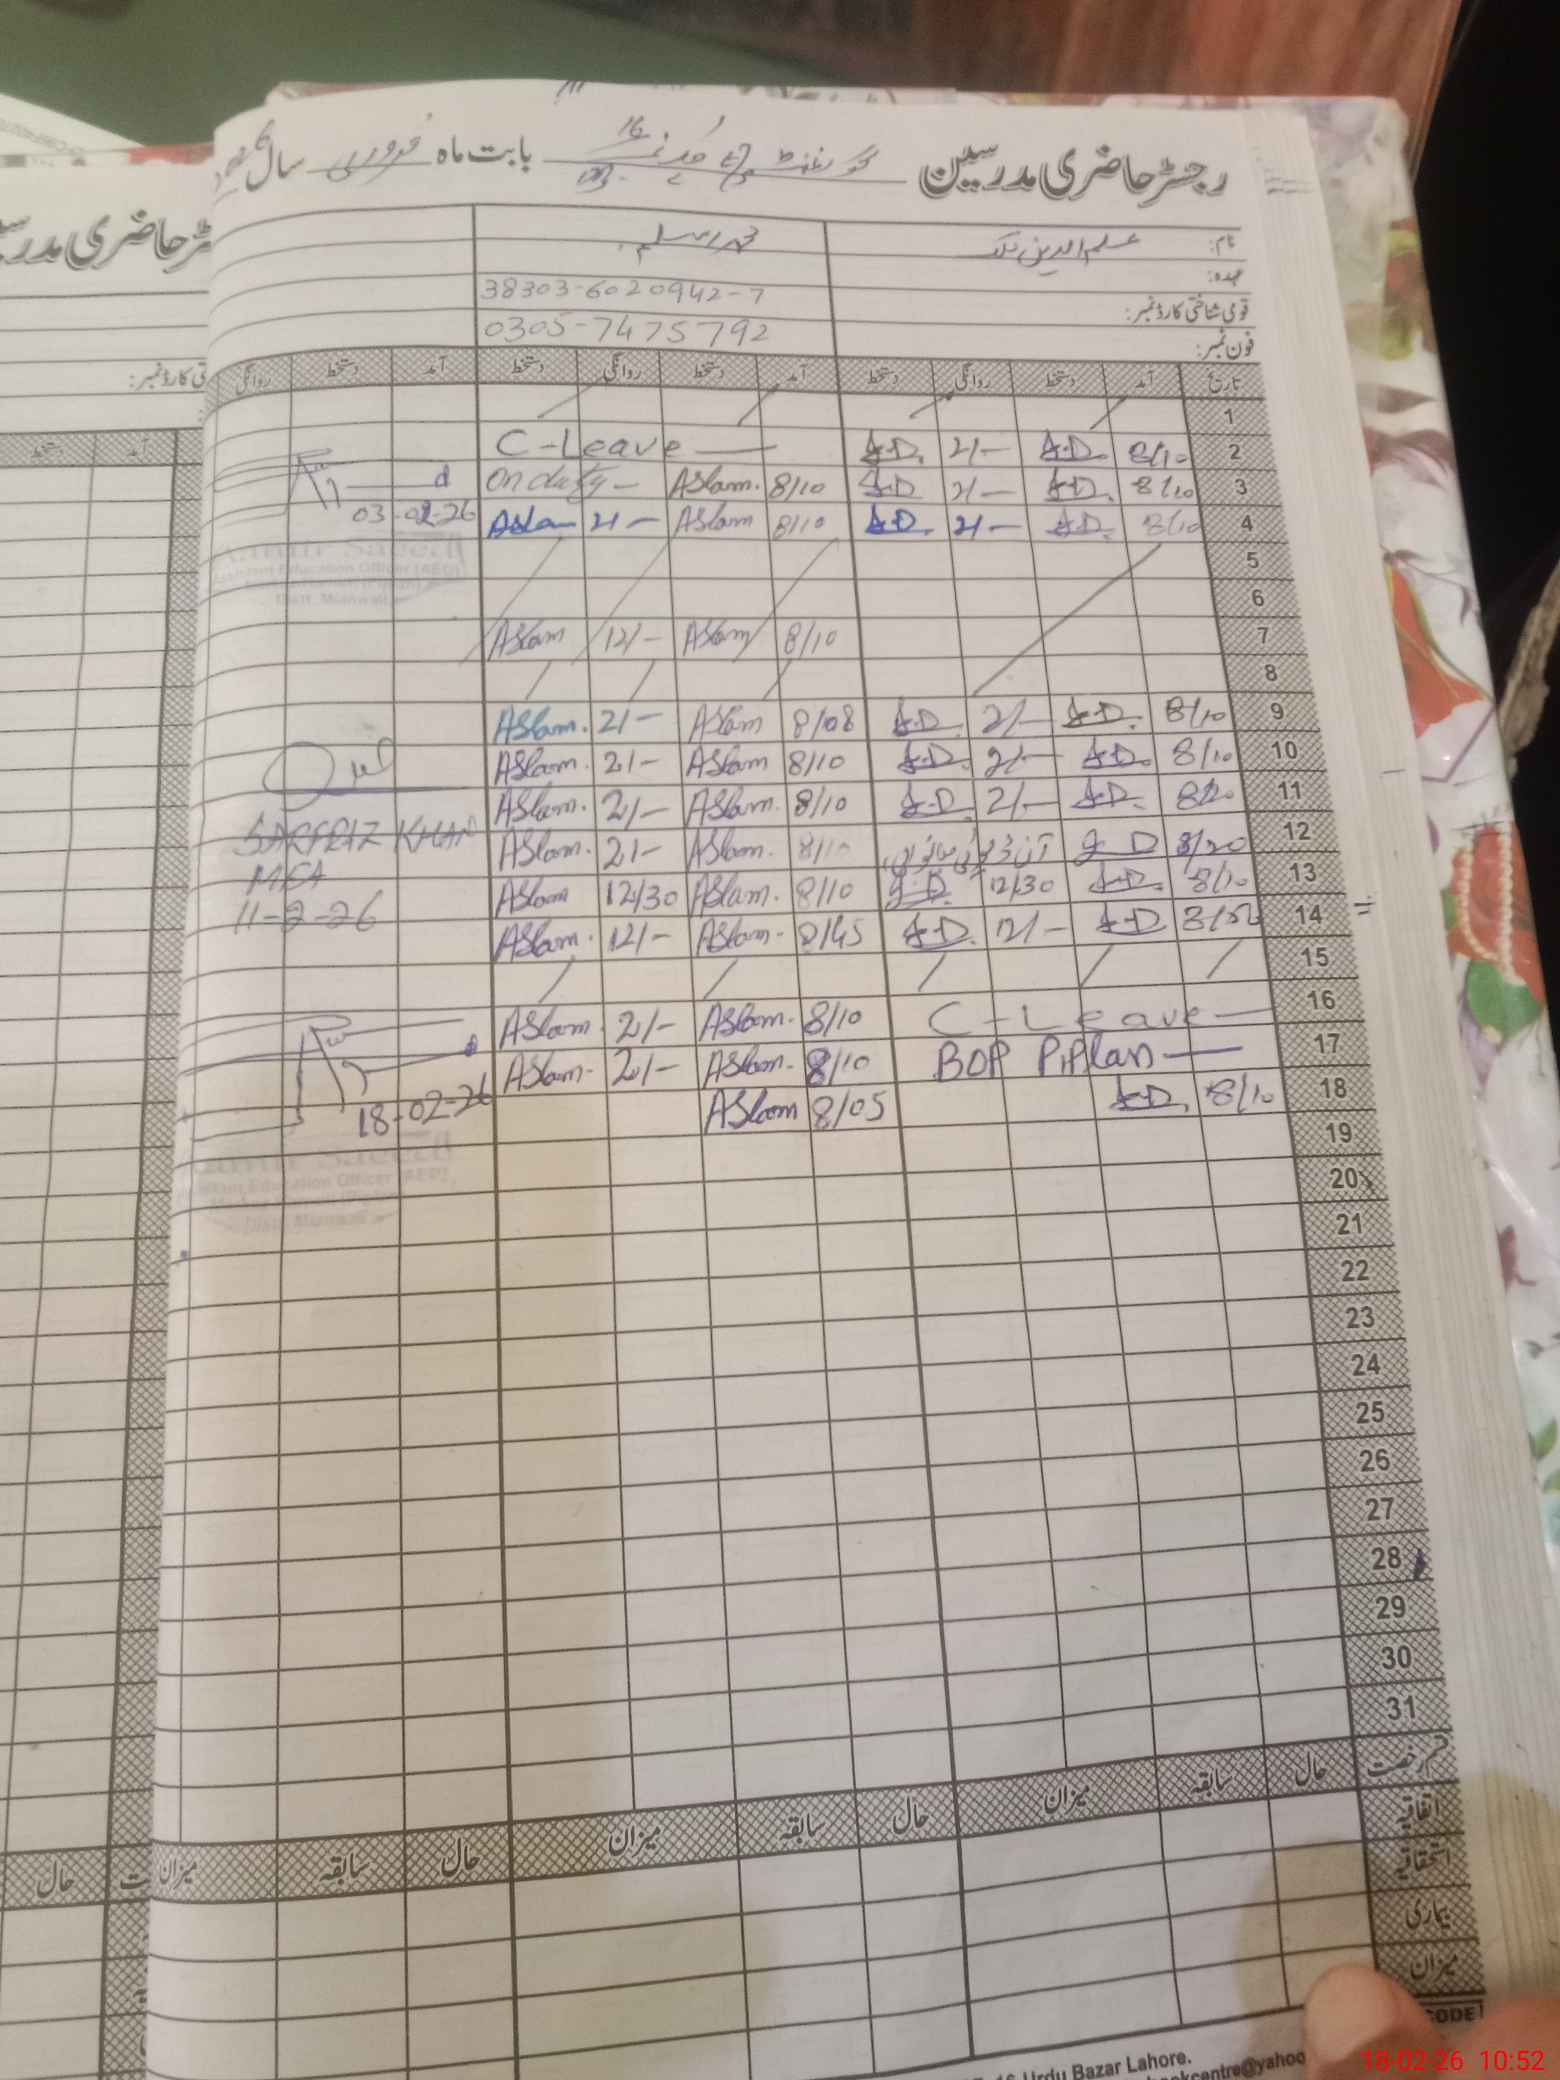 رجسٹر حاضری مدرسین گورنمنٹ بابت ماہ فروری سال
نام: علم الدین ملک محمد اسلم
عہدہ:
قومی شناختی کارڈ نمبر: 38303-6020942-7
فون نمبر: 0305-7475792
تاریخ آمد دستخط روانگی دستخط آمد دستخط روانگی دستخط آمد دستخط روانگی
1
2 8/10 A.D. 2/- A.D. C-Leave
3 8/10 A.D. 2/- A.D. 8/10 Aslam. on duty -
4 8/10 A.D. 2/- A.D. 8/10 Aslam 2/- Aslam
03-02-26
Assistant Education Officer (AEO)
Distt. Mianwali
5
6
7 8/10 Aslam 12/- Aslam
8
9 8/10 A.D. 2/- A.D. 8/08 Aslam 2/- Aslam.
10 8/10 A.D. 2/- A.D. 8/10 Aslam 2/- Aslam.
11 A.D. 2/- A.D. 8/10 Aslam. 2/- Aslam.
12 8/20 8/10 Aslam. 2/- Aslam.
13 8/10 A.D. 12/30 A.D. 8/10 Aslam. 12/30 Aslam
14 A.D. 12/- A.D. 8/45 Aslam. 12/- Aslam.
SARFRAZ KHAN
MEA
11-2-26
15
16 C-Leave 8/10 Aslam. 2/- Aslam.
17 BOP 8/10 Aslam. 2/- Aslam.
18 8/10 A.D. 8/05 Aslam
18-02-26
Education Officer (AEO)
19
20
21
22
23
24
25
26
27
28
29
30
31
قسم رخصت حال سابقہ میزان حال سابقہ میزان حال سابقہ میزان
اتفاقیہ
استحقاقیہ
بیماری
میزان
CODE
Urdu Bazar Lahore.
18-02-26 10:52
رجسٹر حاضری مدرسین
شناختی کارڈ نمبر:
آمد دستخط
حال